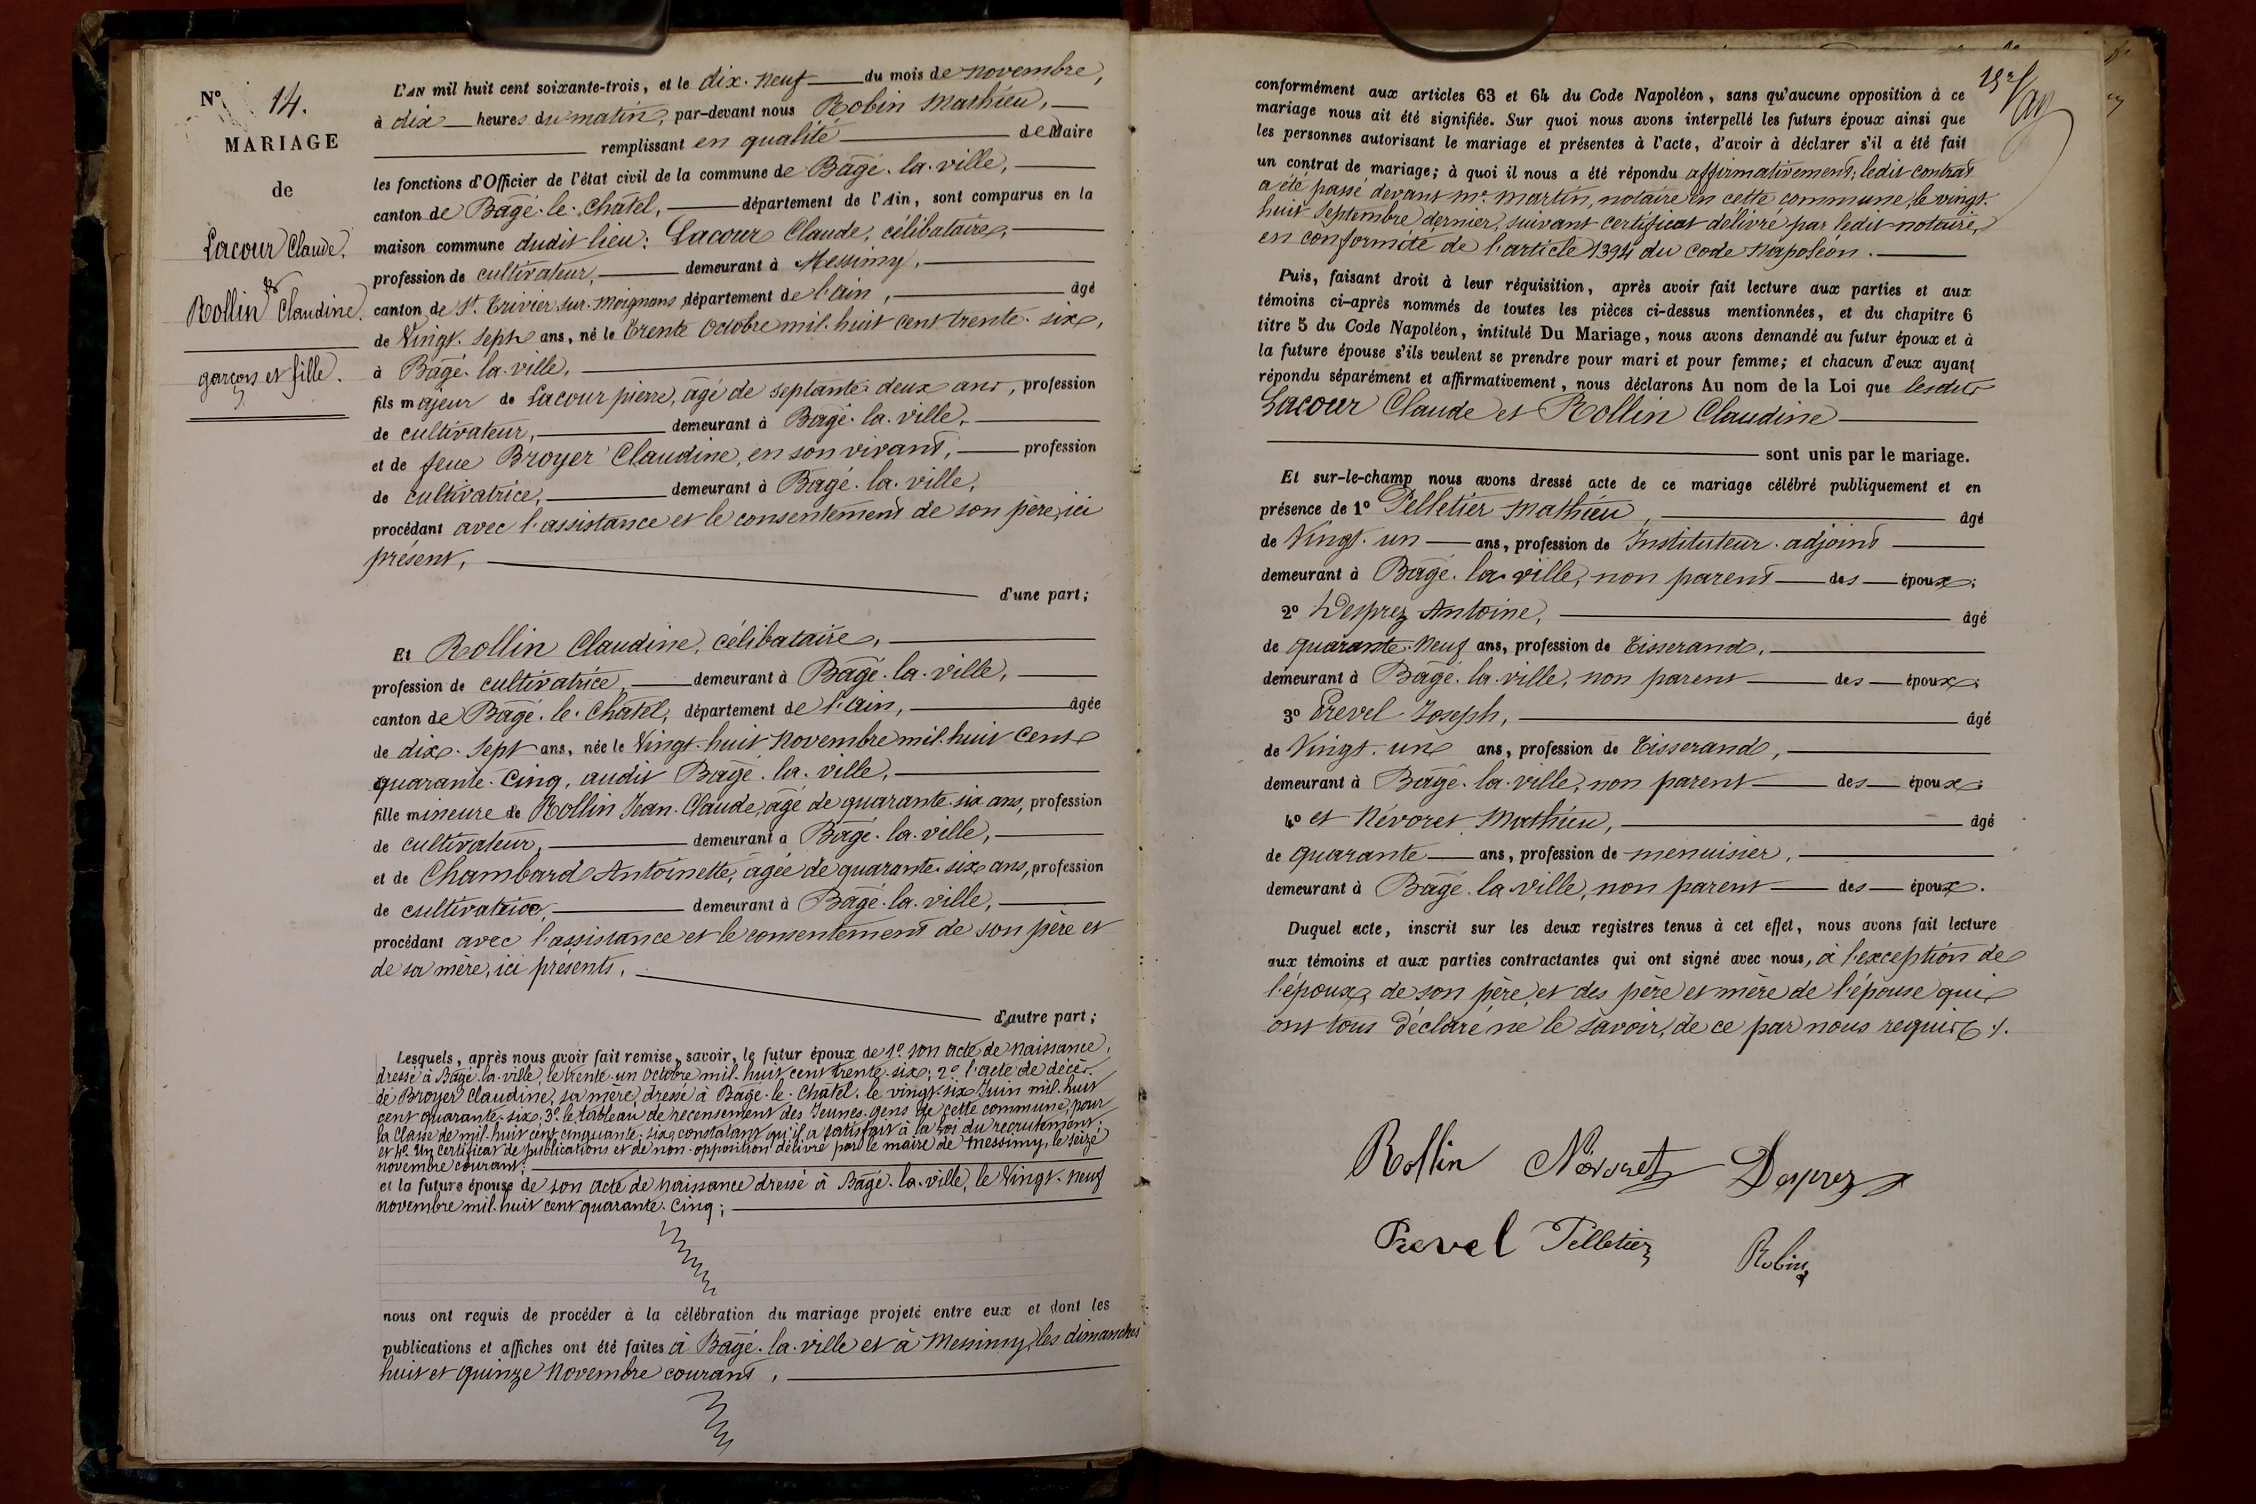 N° 14.
MARIAGE
de
Lacour Claude.
&
Rollin Claudine.
garçon et fille.
L'AN mil huit cent soixante-trois, et le dix-neuf du mois de novembre,
à dix heures du matin, par-devant nous Robin Mathieu,
remplissant en qualité de Maire
les fonctions d'Officier de l'état civil de la commune de Bâgé-la-ville,
canton de Bâgé-le-Châtel, département de l'Ain, sont comparus en la
maison commune dudit lieu: Lacour Claude, célibataire,
profession de cultivateur, demeurant à Messimy,
canton de St. Trivier-sur-Moignans département de l'ain, âgé
de Vingt-Sept ans, né le Trente Octobre mil-huit cent trente-six,
à Bâgé-la-ville,
fils majeur de Lacour pierre, âgé de septante-deux ans, profession
de cultivateur, demeurant à Bâgé-la-ville,
et de feue Broyer Claudine, en son vivant, profession
de cultivatrice, demeurant à Bâgé-la-ville,
procédant avec l'assistance et le consentement de son père, ici
présent,
d'une part;
Et Rollin Claudine, célibataire,
profession de cultivatrice, demeurant à Bâgé-la-ville,
canton de Bâgé-le-Châtel, département de l'ain, âgée
de dix-Sept ans, née le Vingt-huit Novembre mil-huit Cent
quarante-Cinq, audit Bâgé-la-ville,
fille mineure de Rollin Jean-Claude, âgé de quarante-six ans, profession
de cultivateur, demeurant à Bâgé-la-ville,
et de Chambard Antoinette, âgée de quarante-six ans, profession
de cultivatrice, demeurant à Bâgé-la-ville,
procédant avec l'assistance et le consentement de son père et
de sa mère, ici présents,
d'autre part;
Lesquels, après nous avoir fait remise, savoir, le futur époux de 1° son acte de Naissance,
dressé à Bâgé-la-ville, le trente-un Octobre mil-huit cent trente-six; 2° l'acte de décès
de Broyer Claudine, sa mère, dressé à Bâgé-le-Châtel, le vingt-six Juin mil-huit
cent quarante-six; 3° le tableau de recensement des Jeunes-gens de cette commune, pour
la Classe de mil-huit cent cinquante-six, constatant qu'il a satisfait à la loi du recrutement;
et 4° Un certificat de publications et de non-opposition délivré par le maire de Messimy, le seize
novembre courant;
et la future épouse de son acte de Naissance dressé à Bâgé-la-ville, le Vingt-neuf
novembre mil-huit cent quarante-Cinq;
nous ont requis de procéder à la célébration du mariage projeté entre eux et dont les
publications et affiches ont été faites à Bâgé-la-ville et à Messimy, les dimanches
huit et quinze Novembre courant,
conformément aux articles 63 et 64 du Code Napoléon, sans qu'aucune opposition à ce
mariage nous ait été signifiée. Sur quoi nous avons interpellé les futurs époux ainsi que
les personnes autorisant le mariage et présentes à l'acte, d'avoir à déclarer s'il a été fait
un contrat de mariage; à quoi il nous a été répondu affirmativement; ledit contrat
a été passé devant Me. Martin, notaire en cette commune, le vingt-
huit Septembre dernier, suivant certificat délivré par ledit notaire,
en conformité de l'article 1394 du code Napoléon.
Puis, faisant droit à leur réquisition, après avoir fait lecture aux parties et aux
témoins ci-après nommés de toutes les pièces ci-dessus mentionnées, et du chapitre 6
titre 5 du Code Napoléon, intitulé Du Mariage, nous avons demandé au futur époux et à
la future épouse s'ils veulent se prendre pour mari et pour femme; et chacun d'eux ayant
répondu séparément et affirmativement, nous déclarons Au nom de la Loi que lesdits
Lacour Claude et Rollin Claudine
sont unis par le mariage.
Et sur-le-champ nous avons dressé acte de ce mariage célébré publiquement et en
présence de 1° Pelletier Mathieu, âgé
de Vingt-un ans, profession de Instituteur-adjoint
demeurant à Bâgé-la-ville, non parent des époux;
2° Desprez Antoine, âgé
de quarante-Neuf ans, profession de Tisserand,
demeurant à Bâgé-la-ville, non parent des époux;
3° Prevel Joseph, âgé
de Vingt-un ans, profession de Tisserand,
demeurant à Bâgé-la-ville, non parent des époux;
4° et Névoret Mathieu, âgé
de quarante ans, profession de menuisier,
demeurant à Bâgé-la-ville, non parent des époux.
Duquel acte, inscrit sur les deux registres tenus à cet effet, nous avons fait lecture
aux témoins et aux parties contractantes qui ont signé avec nous, à l'exception de
l'époux, de son père, et des père et mère de l'épouse qui
ont tous déclaré ne le savoir, de ce par nous requis ./.
Rollin Névoret Desprez
Prevel Pelletier Robin